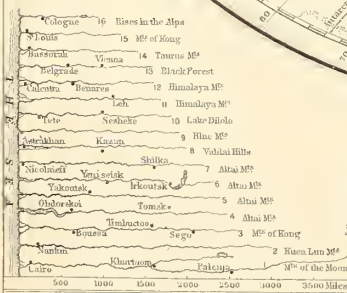 Cologne 16 Rises in the Alps
St Louis 15 Mts of Kong
Bassorah Vienna 14 Taurus Mts
Belgrade 13 Black Forest
Calcutta Benares 12 Himalaya Mts
Leh 11 Himalaya Mts
Tete Nesheke 10 Lake Dilolo
9 Blue Mts
Astrakhan Kazan 8 Valdai Hills
Shilka 7 Altai Mts
Nicolaieff Yeniseisk 6 Altai Mts
Yakoutsk Irkoutsk 5 Altai Mts
Obdorskoi Tomsk 4 Altai Mts
Timbuctoo
Boussa Sego 3 Mts of Kong
Nankin 2 Kuen Lun Mts
Cairo Khartoum 1 Mts of the Moon
500 1000 1500 2000 2500 3000 3500 Miles
THE SEA
60
70